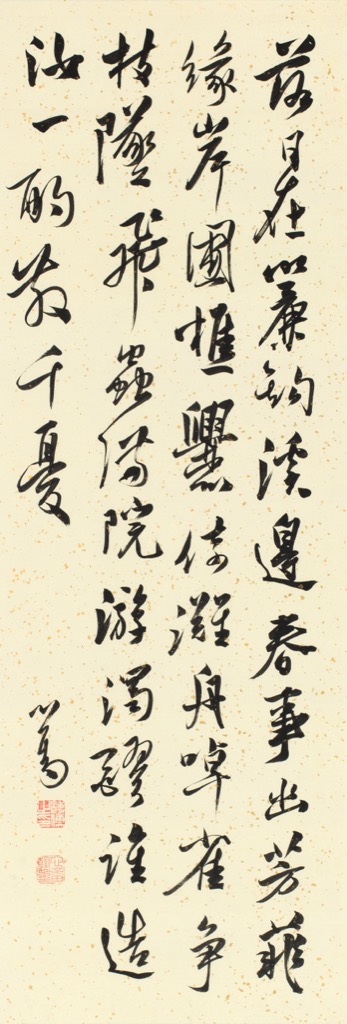 落日在簾鈎溪邊春事幽芳菲
緣岸圃樵爨倚灘舟啅雀争
枝墜飛蟲滿院游濁醪誰造
汝一酌散千憂
心畬